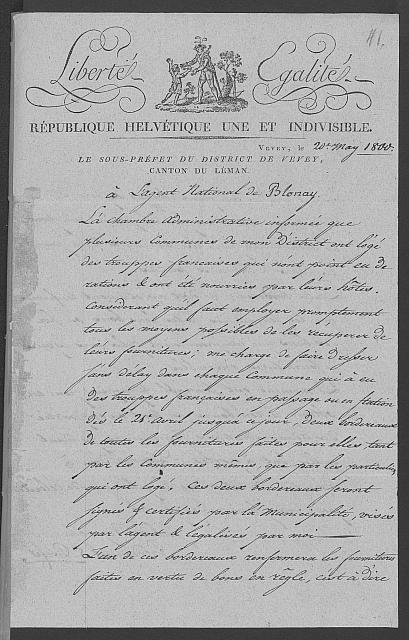 41.
Liberté Egalité
RÉPUBLIQUE HELVÉTIQUE UNE ET INDIVISIBLE.
VEVEY, le 20e. May 1800.
LE SOUS-PRÉFET DU DISTRICT DE VEVEY,
CANTON DU LÉMAN.
à L'agent National de Blonay
La chambre administrative informée que
plusieurs Communes de mon District ont logé
des trouppes françaises qui n'ont point eu de
rations & ont été nourries par leurs hôtes.
Considérant qu'il faut employer promptement
tous les moyens possibles de les récupérer de
leurs fournitures; me charge de faire dresser
sans delay dans chaque Commune qui à eu
des trouppes françaises en passage ou en station
dès le 21e avril jusqu'à ce jour, deux bordereaux
de toutes les fournitures faites pour elles, tant
par les Communes mêmes, que par les particuliers
qui ont logé. Ces deux bordereaux seront
signés & certifiés par la Municipalité, visés
par l'agent & légalisés par moi —
L'un de ces bordereaux renfermera les fournitures
faites en vertu de bons en règle, c'est à dire